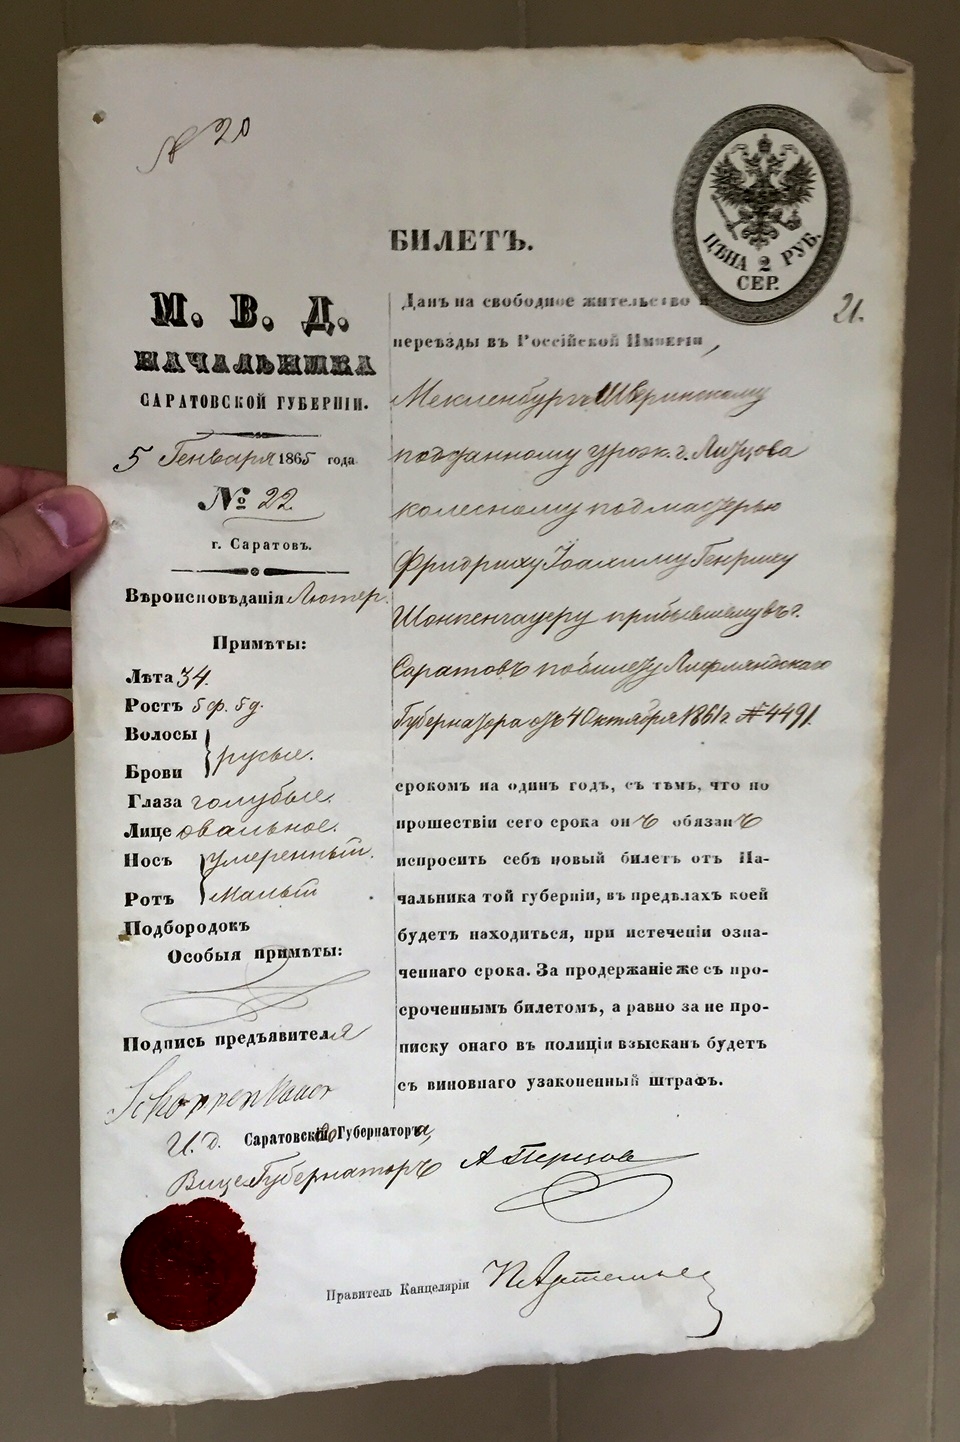 № 20
ЦѢНА 2 РУБ.
СЕР.
21.
БИЛЕТЪ.
М. В. Д.
НАЧАЛЬНИКА
САРАТОВСКОЙ ГУБЕРНІИ.
5 Генваря 1865 года
№ 22.
г. Саратовъ.
Вѣроисповѣданія Лютер.
Примѣты:
Лѣта 34.
Ростъ 5 ф. 5 д.
Волосы
Брови } русые.
Глаза голубые.
Лице овальное.
Носъ } умеренный.
Ротъ малый
Подбородокъ
Особыя примѣты:
Подпись предъявителя
Schoppenhauer
Данъ на свободное жительство и
переѣзды въ Россійской Имперіи,
Мекленбургъ Шверинскому
подданному урож. г.
колесному подмастерью
Фридриху Іоахиму Генриху
Шоппенгауеру прибывшему въ г.
Саратовъ по билету Лифляндскаго
Губернатора отъ 4 Октября 1861 г. № 4491.
срокомъ на одинъ годъ, съ тѣмъ, что по
прошествіи сего срока онъ обязанъ
испросить себѣ новый билетъ отъ На-
чальника той губерніи, въ предѣлахъ коей
будетъ находиться, при истеченіи озна-
ченнаго срока. За продержаніе же съ про-
сроченнымъ билетомъ, а равно за не про-
писку онаго въ полиціи взысканъ будетъ
съ виновнаго узаконенный штрафъ.
И. д. Саратовскаго Губернатора,
Вице Губернаторъ А Перцов
Правитель Канцеляріи